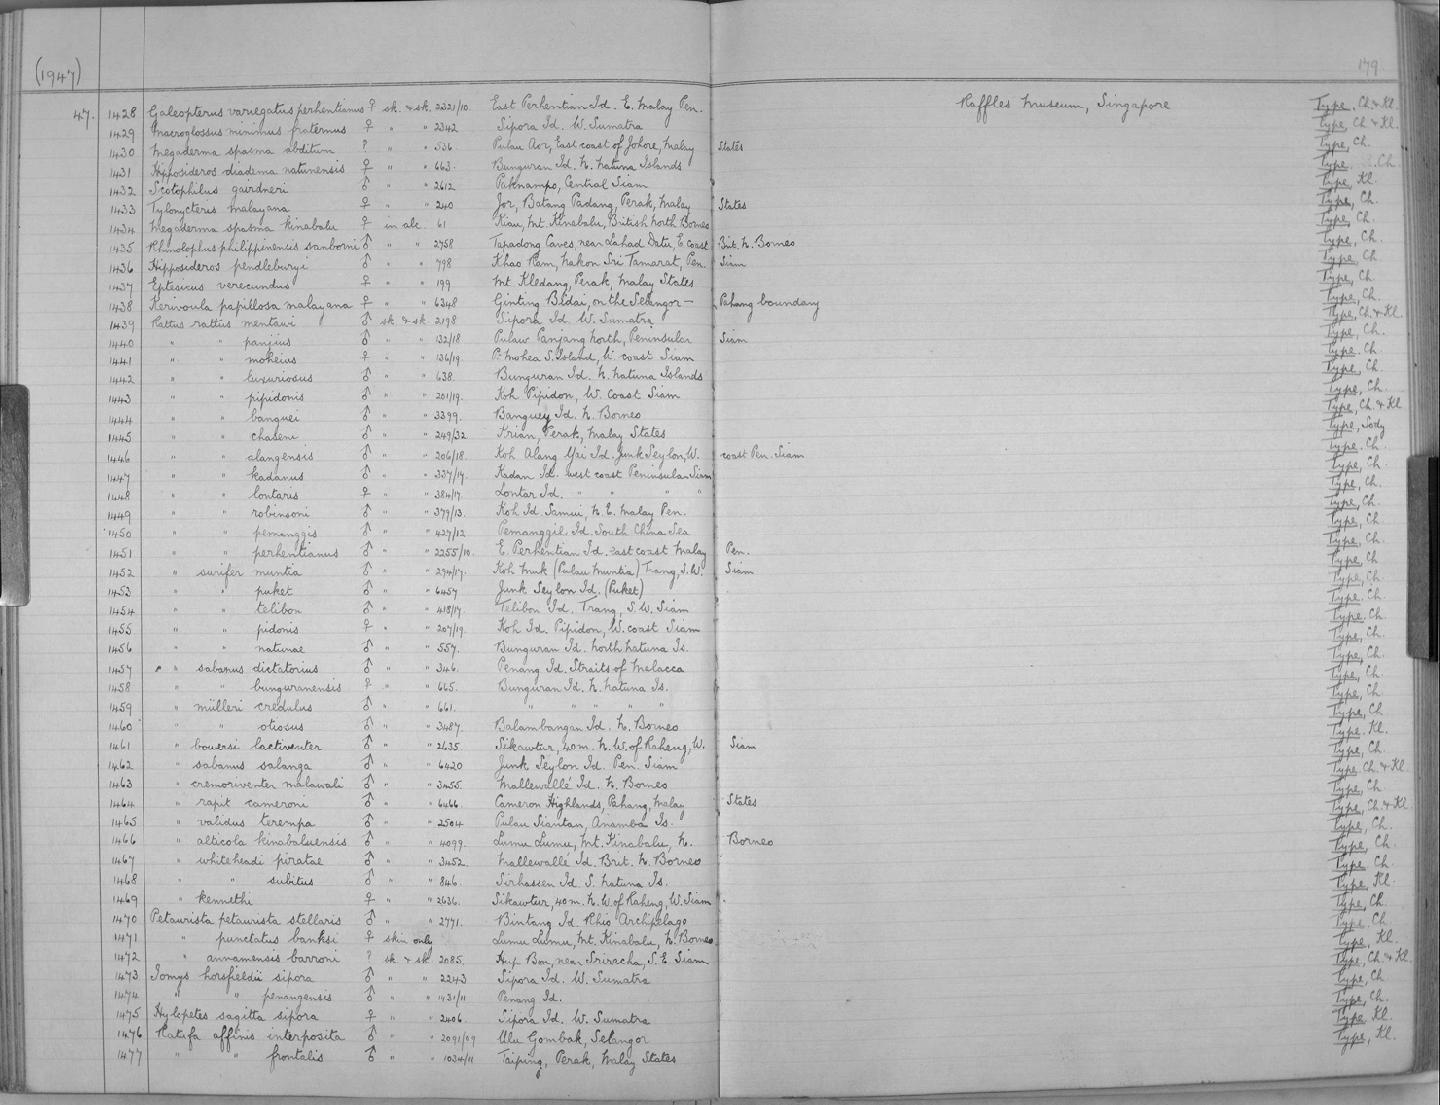 (1947)
179
47. 1428 Galeopterus variegatus perhentianus ♀ sk. & sk. 2321/10. East Perhentian Id. E. Malay Pen. Raffles Museum, Singapore Type. Ch. & Kl.
1429 Macroglossus minimus fraternus ♀ " " 2342 Sipora Id. W. Sumatra Type, Ch. & Kl.
1430 Megaderma spasma abditum ? " " 536 Pulau Aor, East coast of Johore, Malay States Type, Ch.
1431 Hipposideros diadema natunensis ♀ " " 663. Bunguran Id. N. Natuna Islands Type Ch.
1432 Scotophilus gairdneri ♂ " " 2612 Paknampo, Central Siam Type, Kl.
1433 Tylonycteris malayana ♀ " " 240 Jor, Batang Padang, Perak, Malay States Type, Ch.
1434 Megaderma spasma kinabalu ♀ in alc. 61 Kiau, Mt. Kinabalu, British North Borneo Type, Ch.
1435 Rhinolophus philippinensis sanborni ♂ " " 2758 Tapadong Caves, near Lahad Datu, E. coast Brit. N. Borneo Type, Ch.
1436 Hipposideros pendleburyi ♂ " " 798 Khao Ram, Nakon Sri Tamarat, Pen. Siam Type, Ch.
1437 Eptesicus verecundus ♀ " " 199 Mt Kledang, Perak, Malay States Type, Ch.
1438 Kerivoula papillosa malayana ♀ " " 6348 Ginting Bidai, on the Selangor - Pahang boundary Type, Ch.
1439 Rattus rattus mentawi ♂ sk & sk. 2198 Sipora Id. W. Sumatra Type, Ch. & Kl.
1440 " " panjius ♂ " " 132/18 Pulau Panjang North, Peninsular Siam Type, Ch.
1441 " " mokeius ♀ " " 136/19. P. Mohea S. Island, W. coast Siam Type. Ch.
1442 " " luxuriosus ♂ " " 638. Bunguran Id. N. Natuna Islands Type, Ch.
1443 " " pipidonis ♂ " " 201/19. Koh Pipidon, W. Coast Siam Type, Ch.
1444 " " banguei ♂ " " 3399. Banguey Id. N. Borneo Type, Ch. & Kl
1445 " " chaseni ♂ " " 249/32 Krian, Perak, Malay States Type, Sody
1446 " " alangensis ♂ " " 206/18. Koh Alang Yai Id. Junk Seylon, W. coast Pen. Siam Type. Ch.
1447 " " kadanus ♂ " " 337/19. Kadan Id. west coast Peninsular Siam Type, Ch.
1448 " " lontaris ♀ " " 384/17. Lontar Id. " " " " Type, Ch.
1449 " " robinsoni ♂ " " 379/13. Koh Id. Samui, N. E. Malay Pen. Type, Ch.
1450 " " pemanggis ♂ " " 427/12 Pemanggil Id. South China Sea Type, Ch.
1451 " " perhentianus ♂ " " 2255/10. E. Perhentian Id. East coast Malay Pen. Type, Ch.
1452 " surifer muntia ♂ " " 294/17. Koh Muk (Pulau Muntia) Trang, S.W. Siam Type, Ch
1453 " " puket ♂ " " 6457 Junk Seylon Id. (Puket) Type, Ch.
1454 " " telibon ♂ " " 418/17. Telibon Id. Trang, S. W. Siam Type. Ch.
1455 " " pidonis ♀ " " 207/19. Koh Id. Pipidon, W. coast Siam Type. Ch.
1456 " " natunae ♂ " " 557. Bunguran Id. North Natuna Is. Type, Ch.
1457 " sabanus dictatorius ♂ " " 346. Penang Id. Straits of Malacca Type, Ch.
1458 " " bunguranensis ♀ " " 665. Bunguran Id. N. Natuna Is. Type, Ch.
1459 " mülleri credulus ♂ " " 661. " " " " " Type, Ch.
1460 " " otiosus ♂ " " 3487. Balambangan Id. N. Borneo Type, Ch
1461 " bowersi lactiventer ♂ " " 2635. Sikawtur, 40m. N.W. of Raheng, W. Siam Type. Kl.
1462 " sabanus salanga ♂ " " 6420 Junk Seylon Id. Pen. Siam Type, Ch.
1463 " cremoriventer malawali ♂ " " 3455. Mallewallé Id. N. Borneo Type, Ch. & Kl.
1464 " rapit cameroni ♂ " " 6466. Cameron Highlands, Pahang, Malay States Type, Ch.
1465 " validus terempa ♂ " " 2504 Pulau Siantan, Anamba Is. Type, Ch. & Kl.
1466 " alticola kinabaluensis ♂ " " 4099. Lumu Lumu, Mt. Kinabalu, N. Borneo Type, Ch.
1467 " whiteheadi piratae ♂ " " 3452. Mallewallé Id. Brit. N. Borneo Type, Ch.
1468 " " subitus ♂ " " 846. Sirhassen Id. S. Natuna Is. Type, Ch.
1469 " kennethi ♀ " " 2636. Sikawtur, 40m. N.W. of Raheng, W. Siam Type, Kl.
1470 Petaurista petaurista stellaris ♂ " " 2771. Bintang Id. Rhio Archipelago Type, Ch.
1471 " punctatus banksi ♀ skin only Lumu Lumu, Mt. Kinabalu, N. Borneo Type, Ch.
1472 " annamensis barroni ? sk & sk 2085. Hup Bon, near Sriracha, S. E Siam Type, Kl.
1473 Iomys horsfieldii sipora ♂ " " 2243 Sipora Id. W. Sumatra Type, Ch. & Kl.
1474 " " penangensis ♂ " " 1431/11 Penang Id. Type, Ch.
1475 Hylopetes sagitta sipora ♀ " " 2406. Sipora Id. W. Sumatra Type, Ch.
1476 Ratufa affinis interposita ♂ " " 2091/09 Ulu Gombak, Selangor Type, Kl.
1477 " " frontalis ♂ " " 1034/11 Taiping, Perak, Malay States Type, Kl.